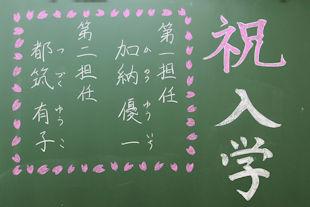 祝
入学
第一担任
加納優一
かのうゆういち
第二担任
都筑有子
つづきゆうこ